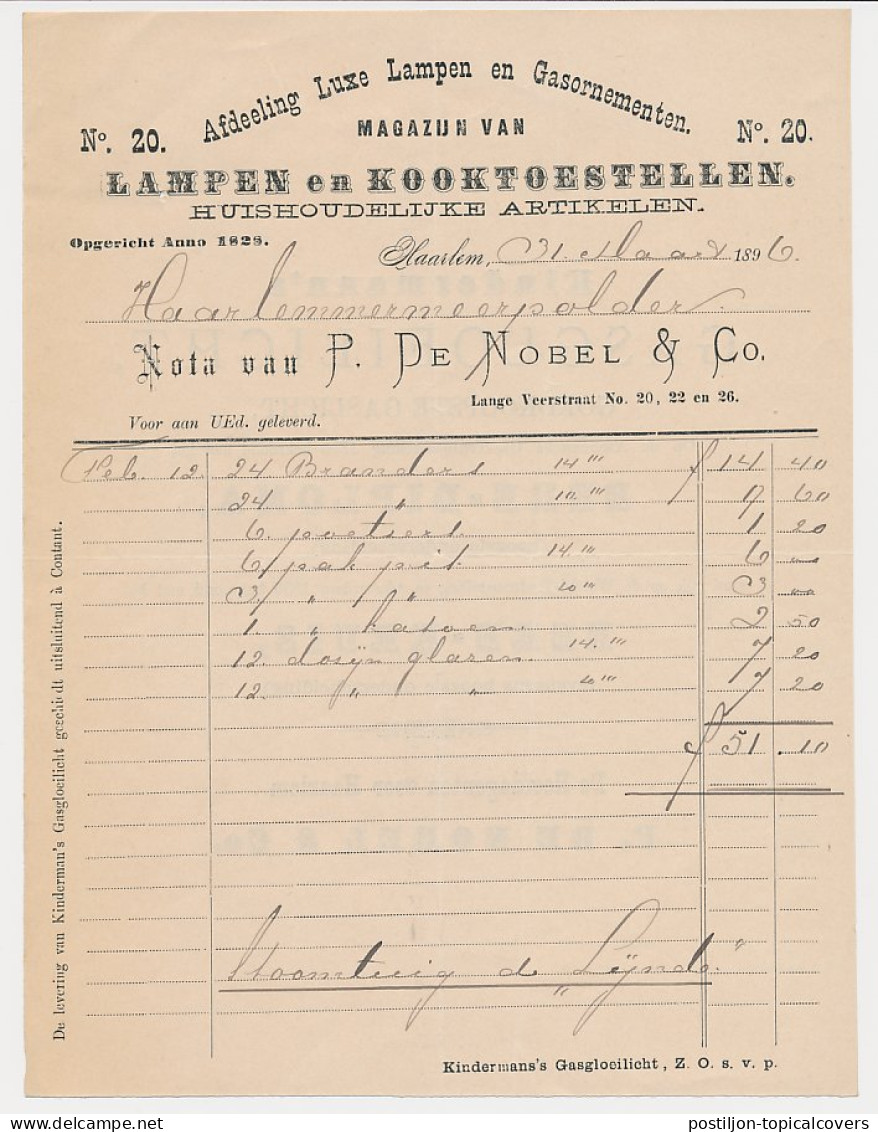 Afdeeling Luxe Lampen en Gasornementen.
No. 20. MAGAZIJN VAN No. 20.
LAMPEN en KOOKTOESTELLEN.
HUISHOUDELIJKE ARTIKELEN.
Opgericht Anno 1828.
Haarlem, 31 Maart 1896.
Haarlemmermeerpolder
Nota van P. DE NOBEL & Co.
Lange Veerstraat No. 20, 22 en 26.
Voor aan UEd. geleverd.
Feb. 12. 24 Branders 14''' ƒ 14 40
24 " 10.''' 60
6. 1 20
6 pak pit 14.''' 6 —
3 " " 3 —
1. " katoen 2 50
12. dosijn glazen 14.''' 7 20
12. " " 7 20
ƒ 51.10
Stoomtuig d „Lijnde"
Kindermans's Gasgloeilicht, Z. O. s. v. p.
De levering van Kinderman's Gasgloeilicht geschiedt uitsluitend à Contant.
postiljon-topicalcovers